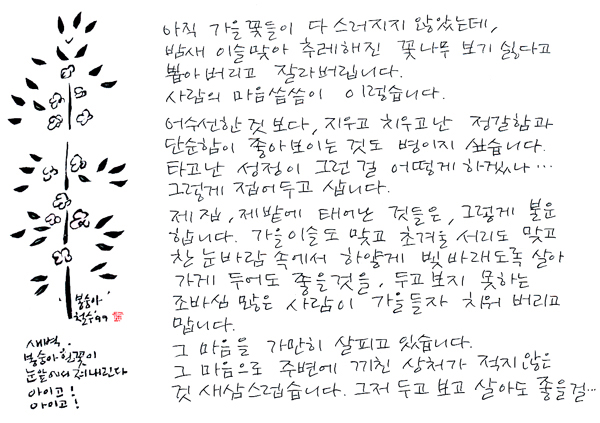 아직 가을꽃들이 다 스러지지 않았는데,
밤새 이슬맞아 추레해진 꽃나무 보기 싫다고
뽑아버리고 잘라버립니다.
사람의 마음씀씀이 이렇습니다.
어수선한 것 보다, 지우고 치우고난 정갈함과
단순함이 좋아보이는 것도 병이지 싶습니다.
타고난 성정이 그런 걸 어떻게 하겠나…
그렇게 접어두고 삽니다.
제 집, 제 밭에 태어난 것들은, 그렇게 불운
합니다. 가을이슬도 맞고 초겨울 서리도 맞고
찬 눈바람 속에서 하얗게 빛 바래도록 살아
가게 두어도 좋을것을, 두고 보지 못하는
조바심 많은 사람이 가을들자 치워 버리고
맙니다.
그 마음을 가만히 살피고 있습니다.
그 마음으로 주변에 끼친 상처가 적지않은
것 새삼스럽습니다. 그저 두고 보고 살아도 좋을걸…
'봉숭아'
철수99
새벽.
봉숭아 흰꽃이
눈앞에서 져내린다
아이고!
아이고!